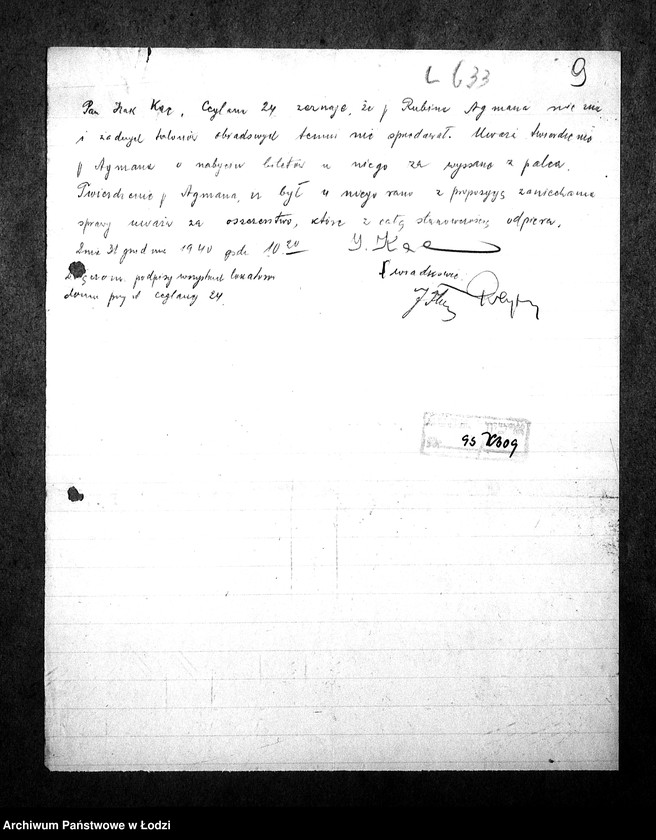 L 633 9
Pan Izak Kac, Ceglana 24 zeznaje, że p Rubina Agmana nie zna
i żadnych talonów obiadowych temu nie sprzedawał. Uważa twierdzenie
p Agmana o nabyciu biletów u niego za wyssane z palca.
Twierdzenie p Agmana, iż był u niego rano z propozycją zaniechania
sprawy uważa za oszczerstwo, które z całą stanowczością odpiera.
Dnia 31 grudnia 1940 godz 10.20 I. Kac
Załączam podpisy wszystkich lokatorów Świadkowie
domu przy ul Ceglanej 24
95 309
Archiwum Państwowe w Łodzi